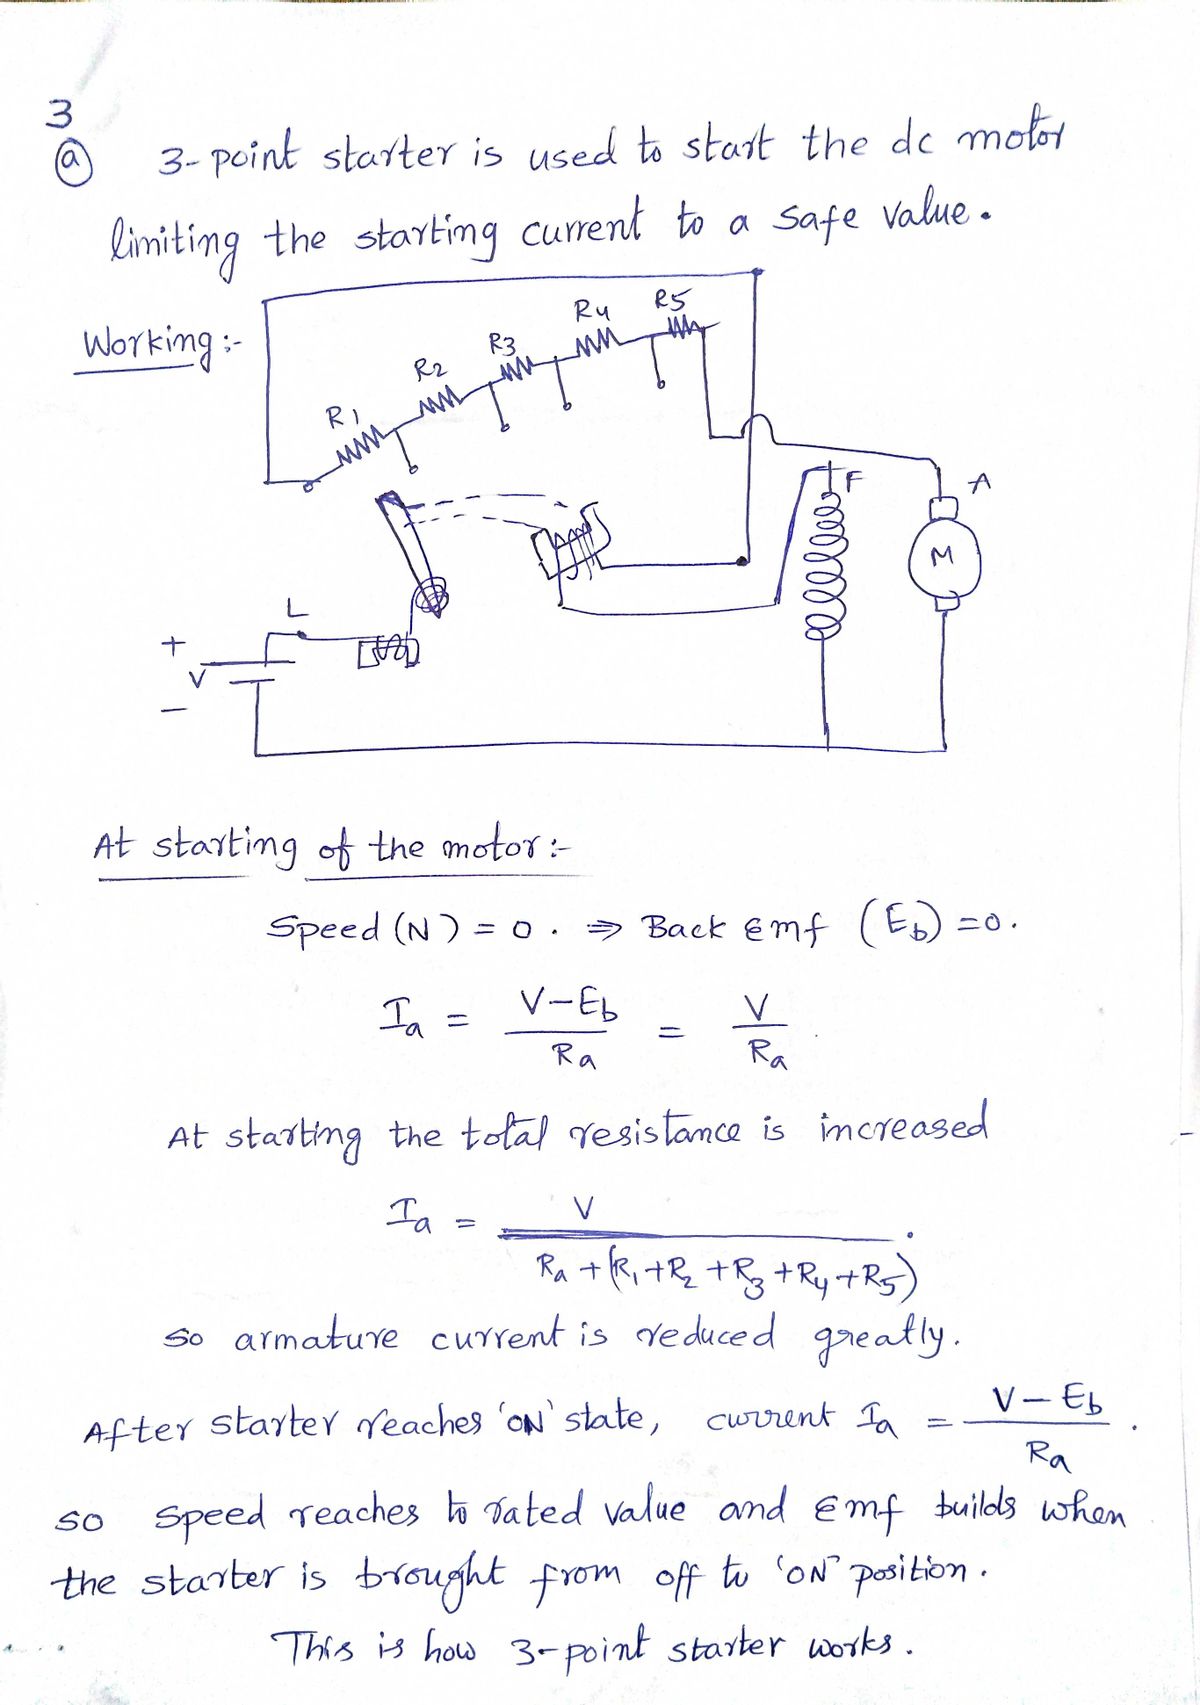 3
(a) 3-point starter is used to start the dc motor
limiting the starting current to a safe value.
Working :-
R1
R2
R3
R4
R5
F
A
M
L
+
V
-
At starting of the motor :-
Speed (N) = 0. ⇒ Back Emf (Eb) = 0.
Ia = (V-Eb)/Ra = V/Ra
At starting the total resistance is increased
Ia = V/(Ra + (R1+R2+R3+R4+R5)).
so armature current is reduced greatly.
After starter reaches 'ON' state, current Ia = (V-Eb)/Ra.
so speed reaches to rated value and Emf builds when
the starter is brought from off to 'ON' position.
This is how 3-point starter works.